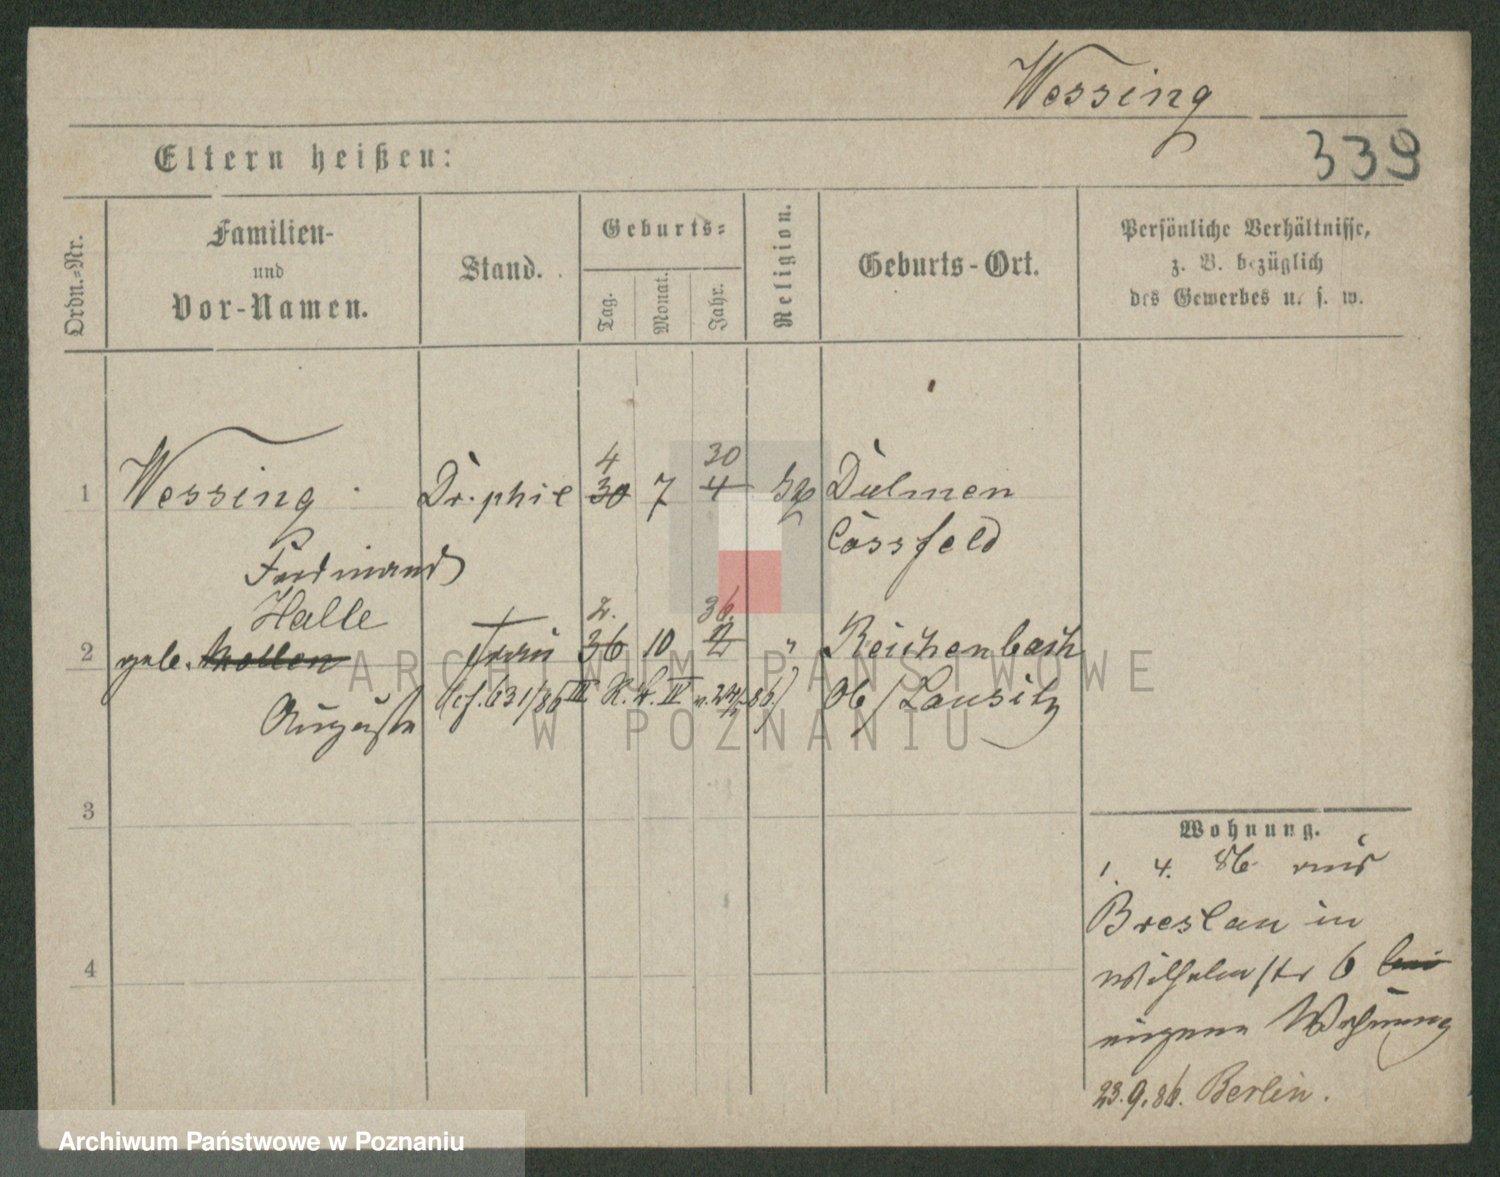 Wessing
339
Eltern heißen:
Ordn.-Nr.
Familien-
und
Vor-Namen.
Stand.
Geburts-
Tag.
Monat.
Jahr.
Religion.
Geburts-Ort.
Persönliche Verhältnisse,
z. B. bezüglich
des Gewerbes u. s. w.
4 30
1 Wessing Dr. phil 30 7 4 Dülmen
Ferdinand Cössfeld
Halle 2. 36.
2 geb. Mollen Frau 36 10 2 " Reichenbach
Auguste 631/86 III Ob/Lausitz
3
4
Wohnung.
1. 4. 86 aus
Breslau in
Wilhelmstr 6 bei
eigene Wohnung
23.9.86. Berlin.
ARCHIWUM PAŃSTWOWE
W POZNANIU
Archiwum Państwowe w Poznaniu